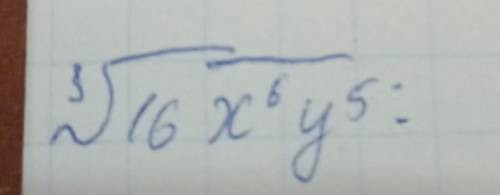 ∛(16x⁶y⁵) :